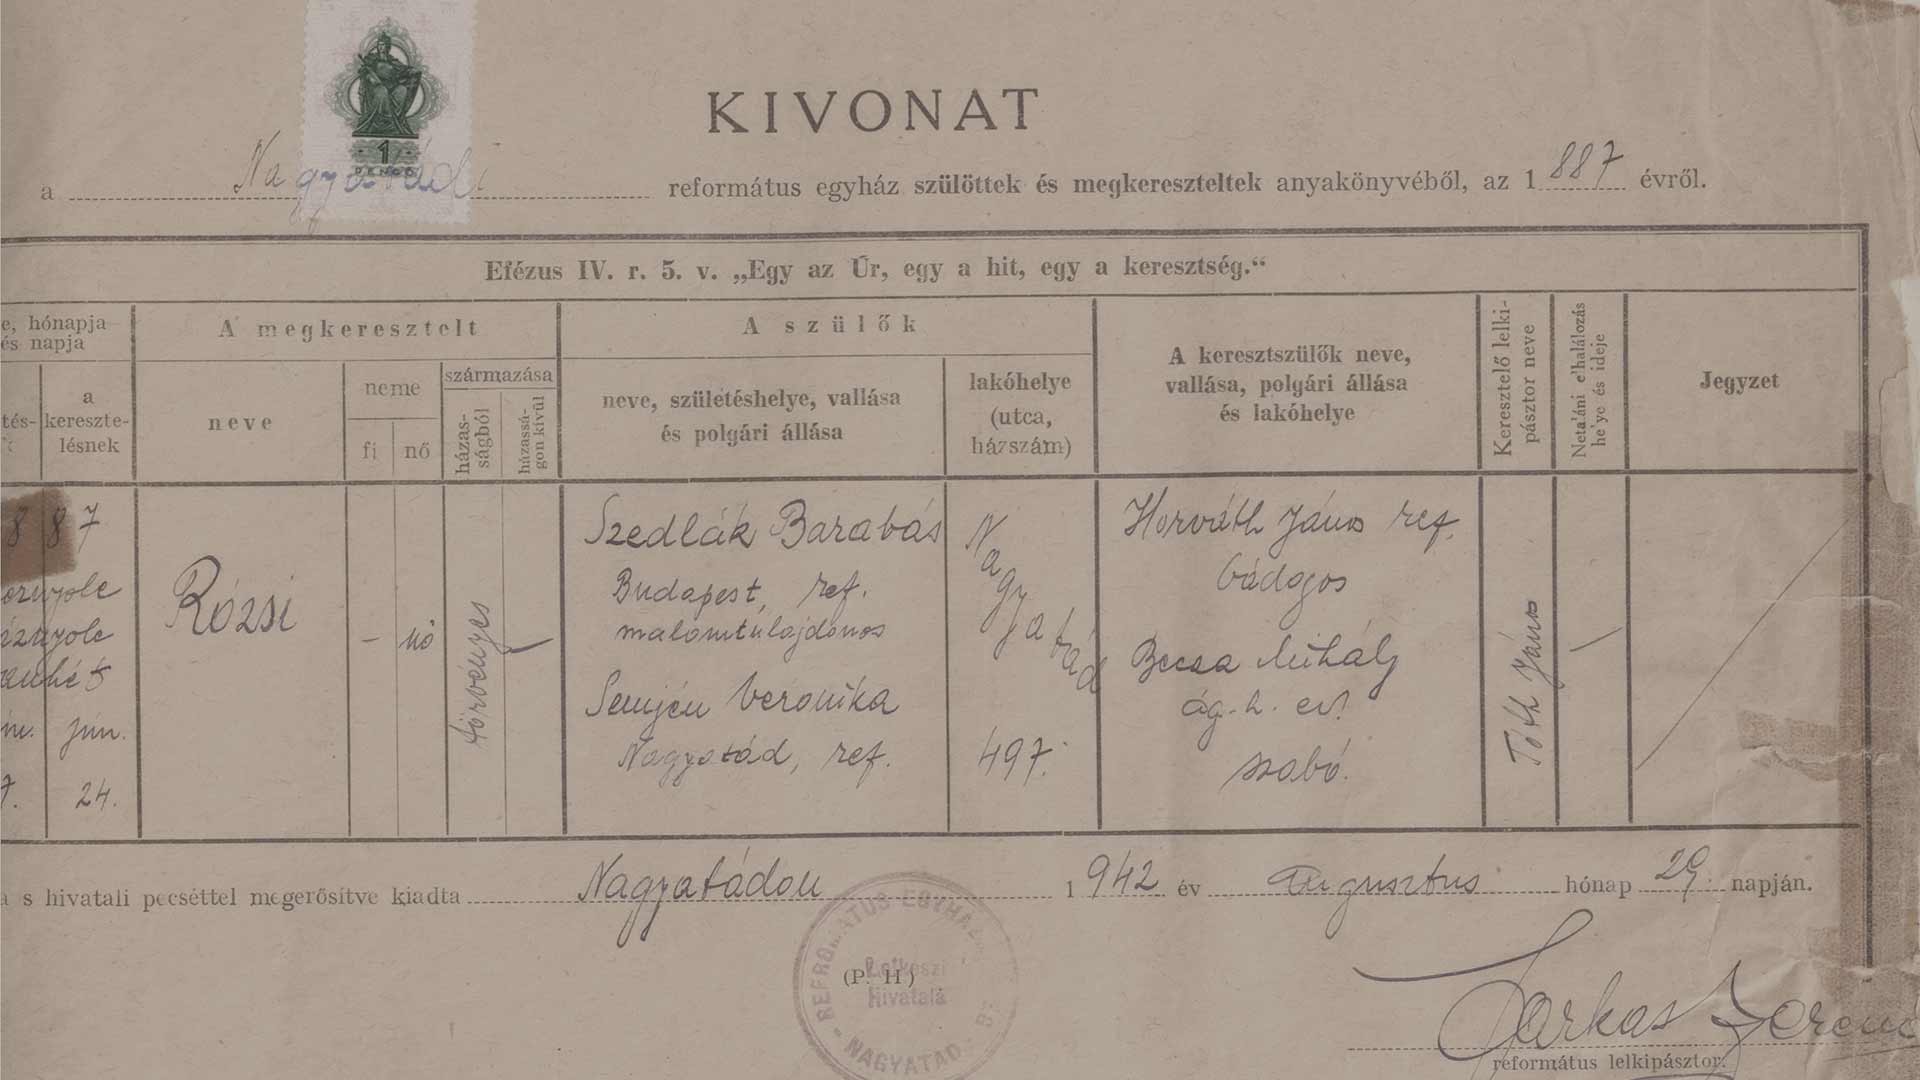 KIVONAT
1
PENGŐ
a Nagyatádi református egyház szülöttek és megkereszteltek anyakönyvéből, az 1887 évről.
Efézus IV. r. 5. v. „Egy az Úr, egy a hit, egy a keresztség.“
e, hónapja
és napja
tés-
a
kereszte-
lésnek
A megkeresztelt
neve
neme
fi
nő
származása
házas-
ságból
házassá-
gon kívül
A szülők
neve, születéshelye, vallása
és polgári állása
lakóhelye
(utca,
házszám)
A keresztszülők neve,
vallása, polgári állása
és lakóhelye
Keresztelő lelki-
pásztor neve
Netaláni elhalálozás
helye és ideje
Jegyzet
887
jun.
24.
7.
Rózsi
-
nő
törvényes
Szedlák Barabás
Budapest, ref.
malomtulajdonos
Semjén Veronika
Nagyatád, ref.
Nagyatád
497.
Horváth János ref.
bádogos
Mihály
ág. h. ev.
szabó.
Tóth János
a s hivatali pecséttel megerősítve kiadta Nagyatádon 1942 év Augusztus hónap 29. napján.
(P. H.)
REFORMÁTUS EGYHÁZ
Hivatala
NAGYATÁD
Farkas Ferenc
református lelkipásztor.